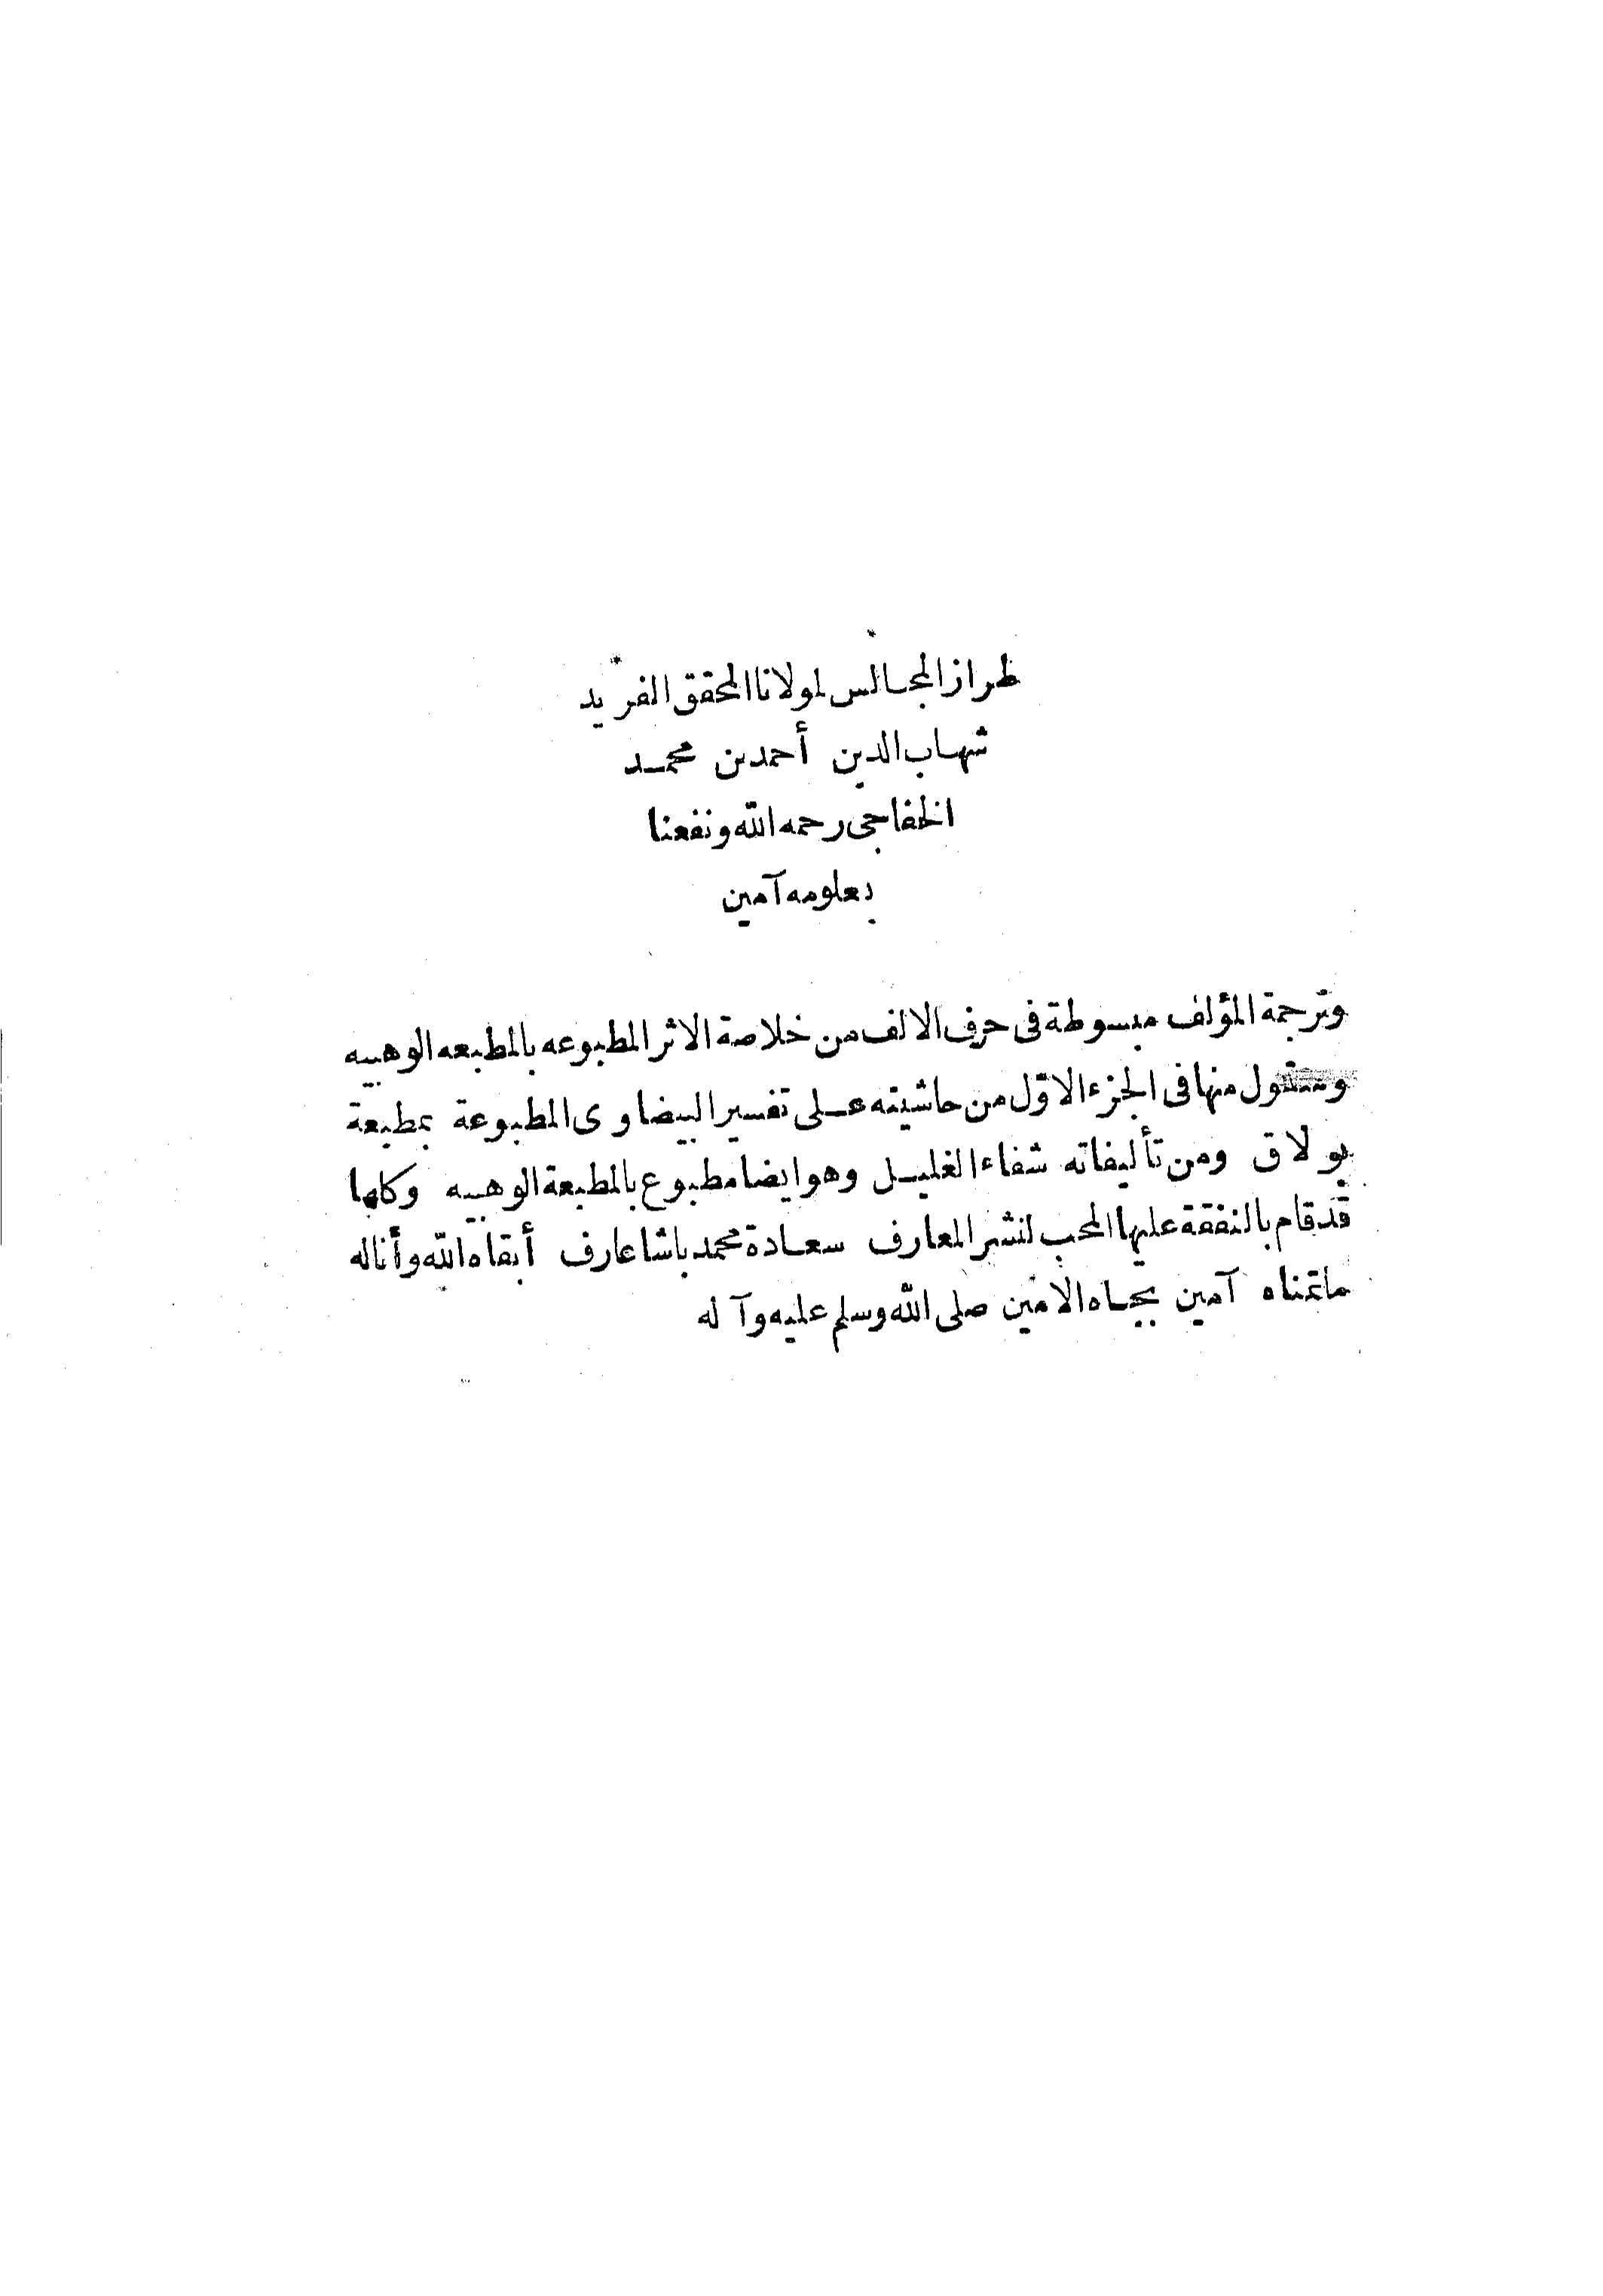 طراز المجالس لمولانا المحقق الفريد
شهاب الدين أحمد بن محمد
الخفاجى رحمه الله ونفعنا
بعلومه آمين
وترجمة المؤلف مبسوطة فى حرف الالف من خلاصة الاثر المطبوعه بالمطبعه الوهبيه
ومنقول منها فى الجزء الاوّل من حاشيته على تفسير البيضاوى المطبوعة بمطبعة
بولاق ومن تأليفاته شفاء الغليل وهو ايضا مطبوع بالمطبعة الوهبيه وكلها
قد قام بالنفقة عليها المحب لنشر المعارف سعادة محمد باشا عارف أبقاه الله وأناله
ما تمناه آمين بجاه الامين صلى الله وسلم عليه وآله